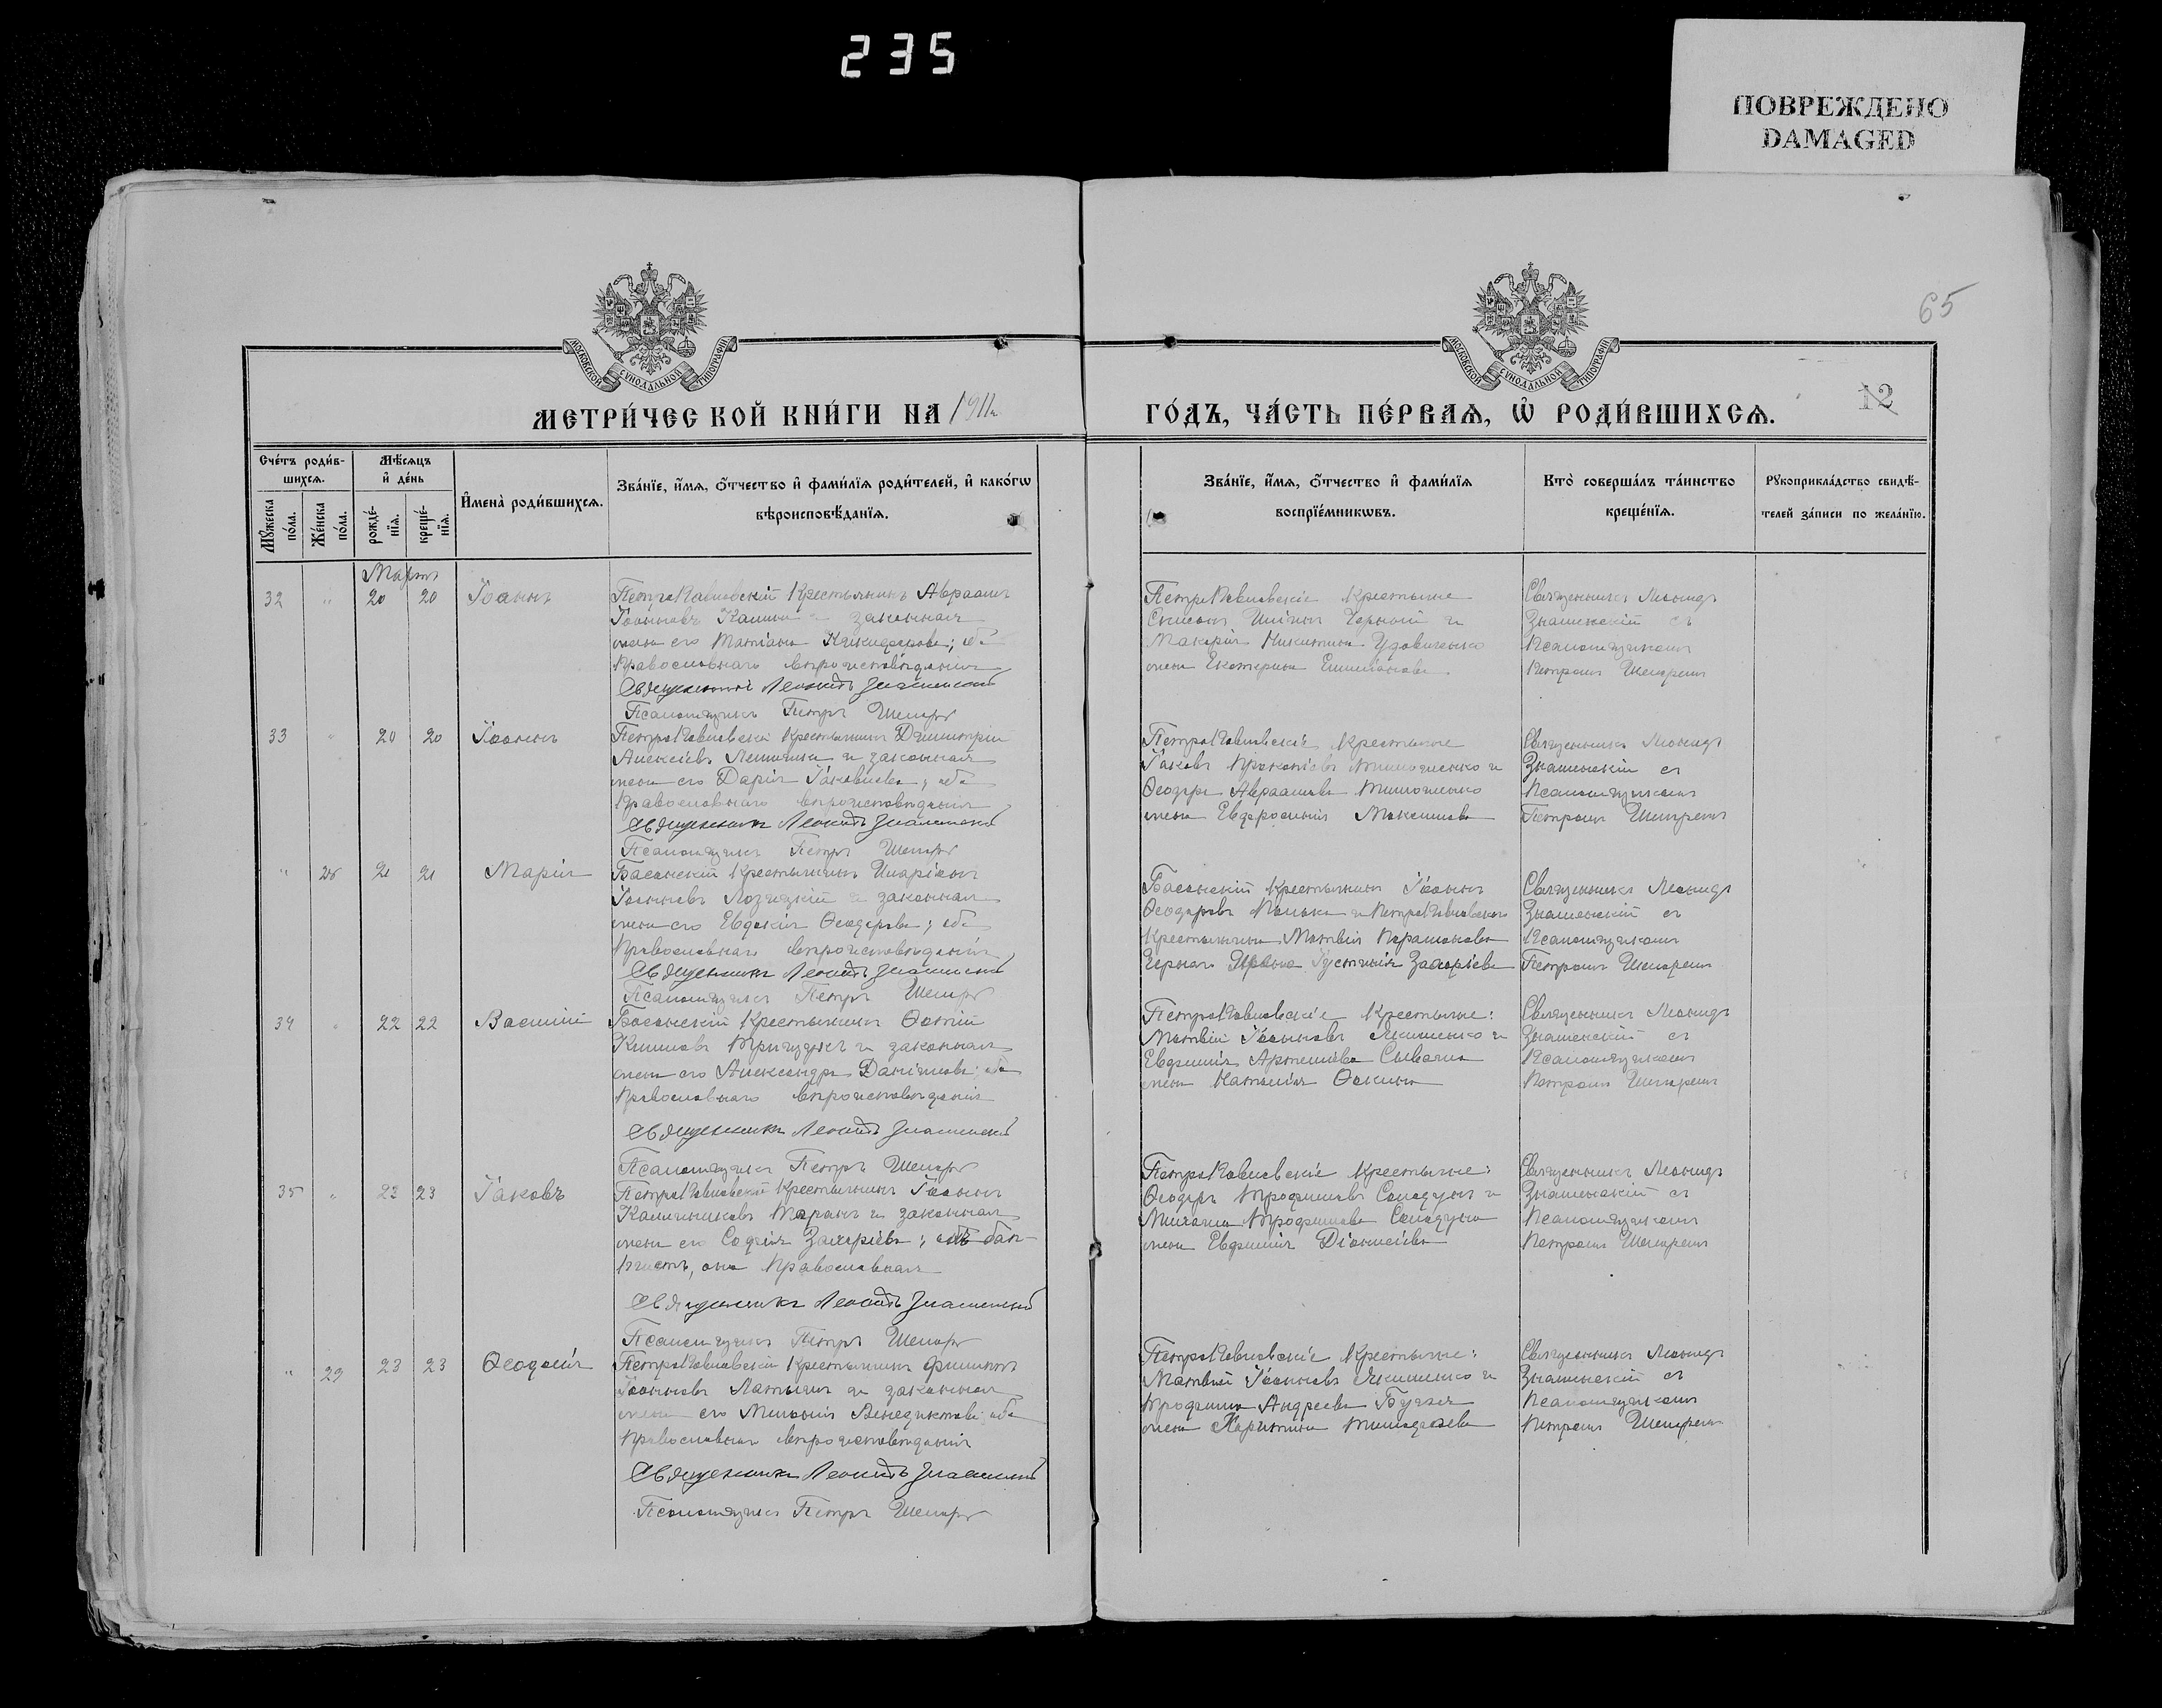 235
ПОВРЕЖДЕНО
DAMAGED
65
МОСКОВСКОЙ СѴНОДАЛЬНОЙ ТИПОГРАФІИ
МОСКОВСКОЙ СѴНОДАЛЬНОЙ ТИПОГРАФІИ
12
МЕТРИ́ЧЕСКОЙ КНИ́ГИ НА 1911
ГО́ДЪ, ЧА́СТЬ ПЕ́РВАѦ, Ѡ҆ РОДИ́ВШИХСѦ.
Сче́тъ роди́в-
шихсѧ.
Мꙋжеска по́ла.
Же́нска по́ла.
Мѣ́сѧцъ
и҆ де́нь
рожде́-
нїѧ.
креще́-
нїѧ.
И҆мена̀ роди́вшихсѧ.
Зва́нїе, и҆́мѧ, ѻ҆́тчество и҆ фами́лїѧ роди́телей, и҆ како́гѡ
вѣроисповѣ́данїѧ.
Зва́нїе, и҆́мѧ, ѻ҆́тчество и҆ фами́лїѧ
воспрїе́мникѡвъ.
Кто̀ соверша́лъ та́инство
креще́нїѧ.
Рꙋкоприкла́дство свидѣ́-
телей за́писи по жела́нїю.
Мартъ
32 " 20 20 Іоаннъ
Петропавловскій крестьянинъ Авраамъ
Іоанновъ и законная
жена его Татіана Никифорова; оба
православнаго вѣроисповѣданія
Священникъ Леонидъ Знаменскій
Псаломщикъ Петръ
Петропавловскіе крестьяне
Симеонъ Черный и
Макарія Никитина Удовиченко
жена Екатерина Емиліанова
Священникъ Леонидъ
Знаменскій съ
псаломщикомъ
Петромъ
33 " 20 20 Іоаннъ
Петропавловскій крестьянинъ Димитрій
Алексіевъ и законная
жена его Дарія Іаковлева; оба
православнаго вѣроисповѣданія
Священникъ Леонидъ Знаменскій
Псаломщикъ Петръ
Петропавловскіе крестьяне
Іаковъ Прокопіевъ Тимошенко и
Ѳеодора Авраамова Тимошенко
жена Евфросинія Максимова
Священникъ Леонидъ
Знаменскій съ
псаломщикомъ
Петромъ
" 28 21 21 Марія
крестьянинъ Иларіонъ
Іоанновъ Лозицкій и законная
жена его Евдокія Ѳеодорова; оба
православнаго вѣроисповѣданія
Священникъ Леонидъ Знаменскій
Псаломщикъ Петръ
крестьянинъ Іоаннъ
Ѳеодоровъ и Петропавловскаго
крестьянина Матвія Парамонова
Чернаго жена Іустинія Захаріева
Священникъ Леонидъ
Знаменскій съ
псаломщикомъ
Петромъ
34 " 22 22 Василій
крестьянинъ Фотій
и законная
жена его Александра Даніилова; оба
православнаго вѣроисповѣданія
Священникъ Леонидъ Знаменскій
Псаломщикъ Петръ
Петропавловскіе крестьяне:
Матвій Іоанновъ Якименко и
Евфимія Артемова
жена Наталія Фокина
Священникъ Леонидъ
Знаменскій съ
псаломщикомъ
Петромъ
35 " 23 23 Іаковъ
Петропавловскій крестьянинъ Іоаннъ
Каллиниковъ Таранъ и законная
жена его Софія Захаріева; онъ бап-
тистъ, она православная
Священникъ Леонидъ Знаменскій
Псаломщикъ Петръ
Петропавловскіе крестьяне:
Ѳеодоръ Трофимовъ Солодунъ и
Михаила Трофимова Солодуна
жена Евфимія Діонисіева
Священникъ Леонидъ
Знаменскій съ
псаломщикомъ
Петромъ
" 29 23 23 Ѳеодосія
Петропавловскій крестьянинъ Филиппъ
Іоанновъ и законная
жена его Меланія Венедиктова; оба
православнаго вѣроисповѣданія
Священникъ Леонидъ Знаменскій
Псаломщикъ Петръ
Петропавловскіе крестьяне:
Матвій Іоанновъ Якименко и
Трофима Андреева
жена Харитина Тимофеева
Священникъ Леонидъ
Знаменскій съ
псаломщикомъ
Петромъ